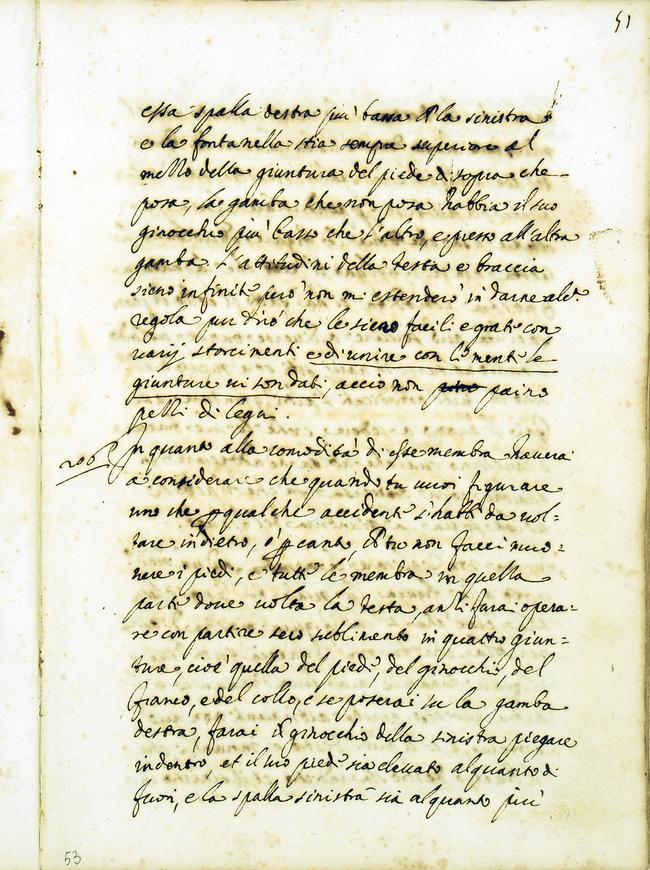 51
essa spalla destra piu bassa ch la sinistra
e la fontanella stia sempre superiore al
mezzo della giuntura del piede di sopra che
posa, la gamba che non posa habbia il suo
ginocchio piu basso che l'altro, e presso all'altra
gamba. L'attitudini della testa e braccia
sieno infinite però non mi estenderò in darne alc.a
regola pur dirò che le sieno facili e grate con
varij storcimenti e di unire con li mente le
giunture vi son dati, accio non paino
pezzi di legni.
206 In quanto alla comodità di esse membra haverai
a considerare che quando tu vuoi figurare
uno che p qualche accidente s'habbi da vol=
tare indietro, ò p canto, ch tu non facci muo=
vere i piedi, e tutte le membra in quella
parte dove volta la testa, anzi farai opera=
re con partire seco in quattro giun=
ture, cioè quella del piede, del ginocchio, del
fianco, e del collo, e se poserai su la gamba
destra, farai il ginocchio della sinistra piegare
indentro, et il suo piede sia elevato alquanto di
fuori, e la spalla sinistra sia alquanto più
53